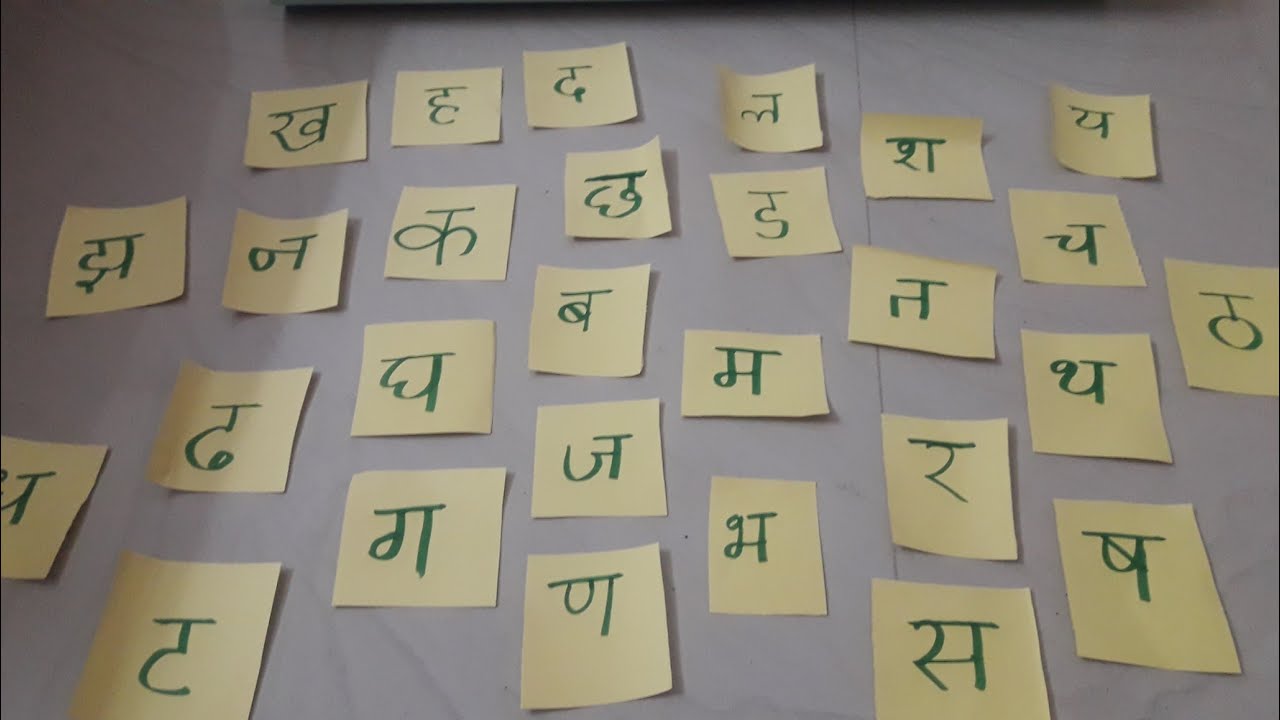 ख ह द ल श य
झ न क छ ड च
ब त ठ
ढ घ म थ
ज र
ग भ ष
ट ण स